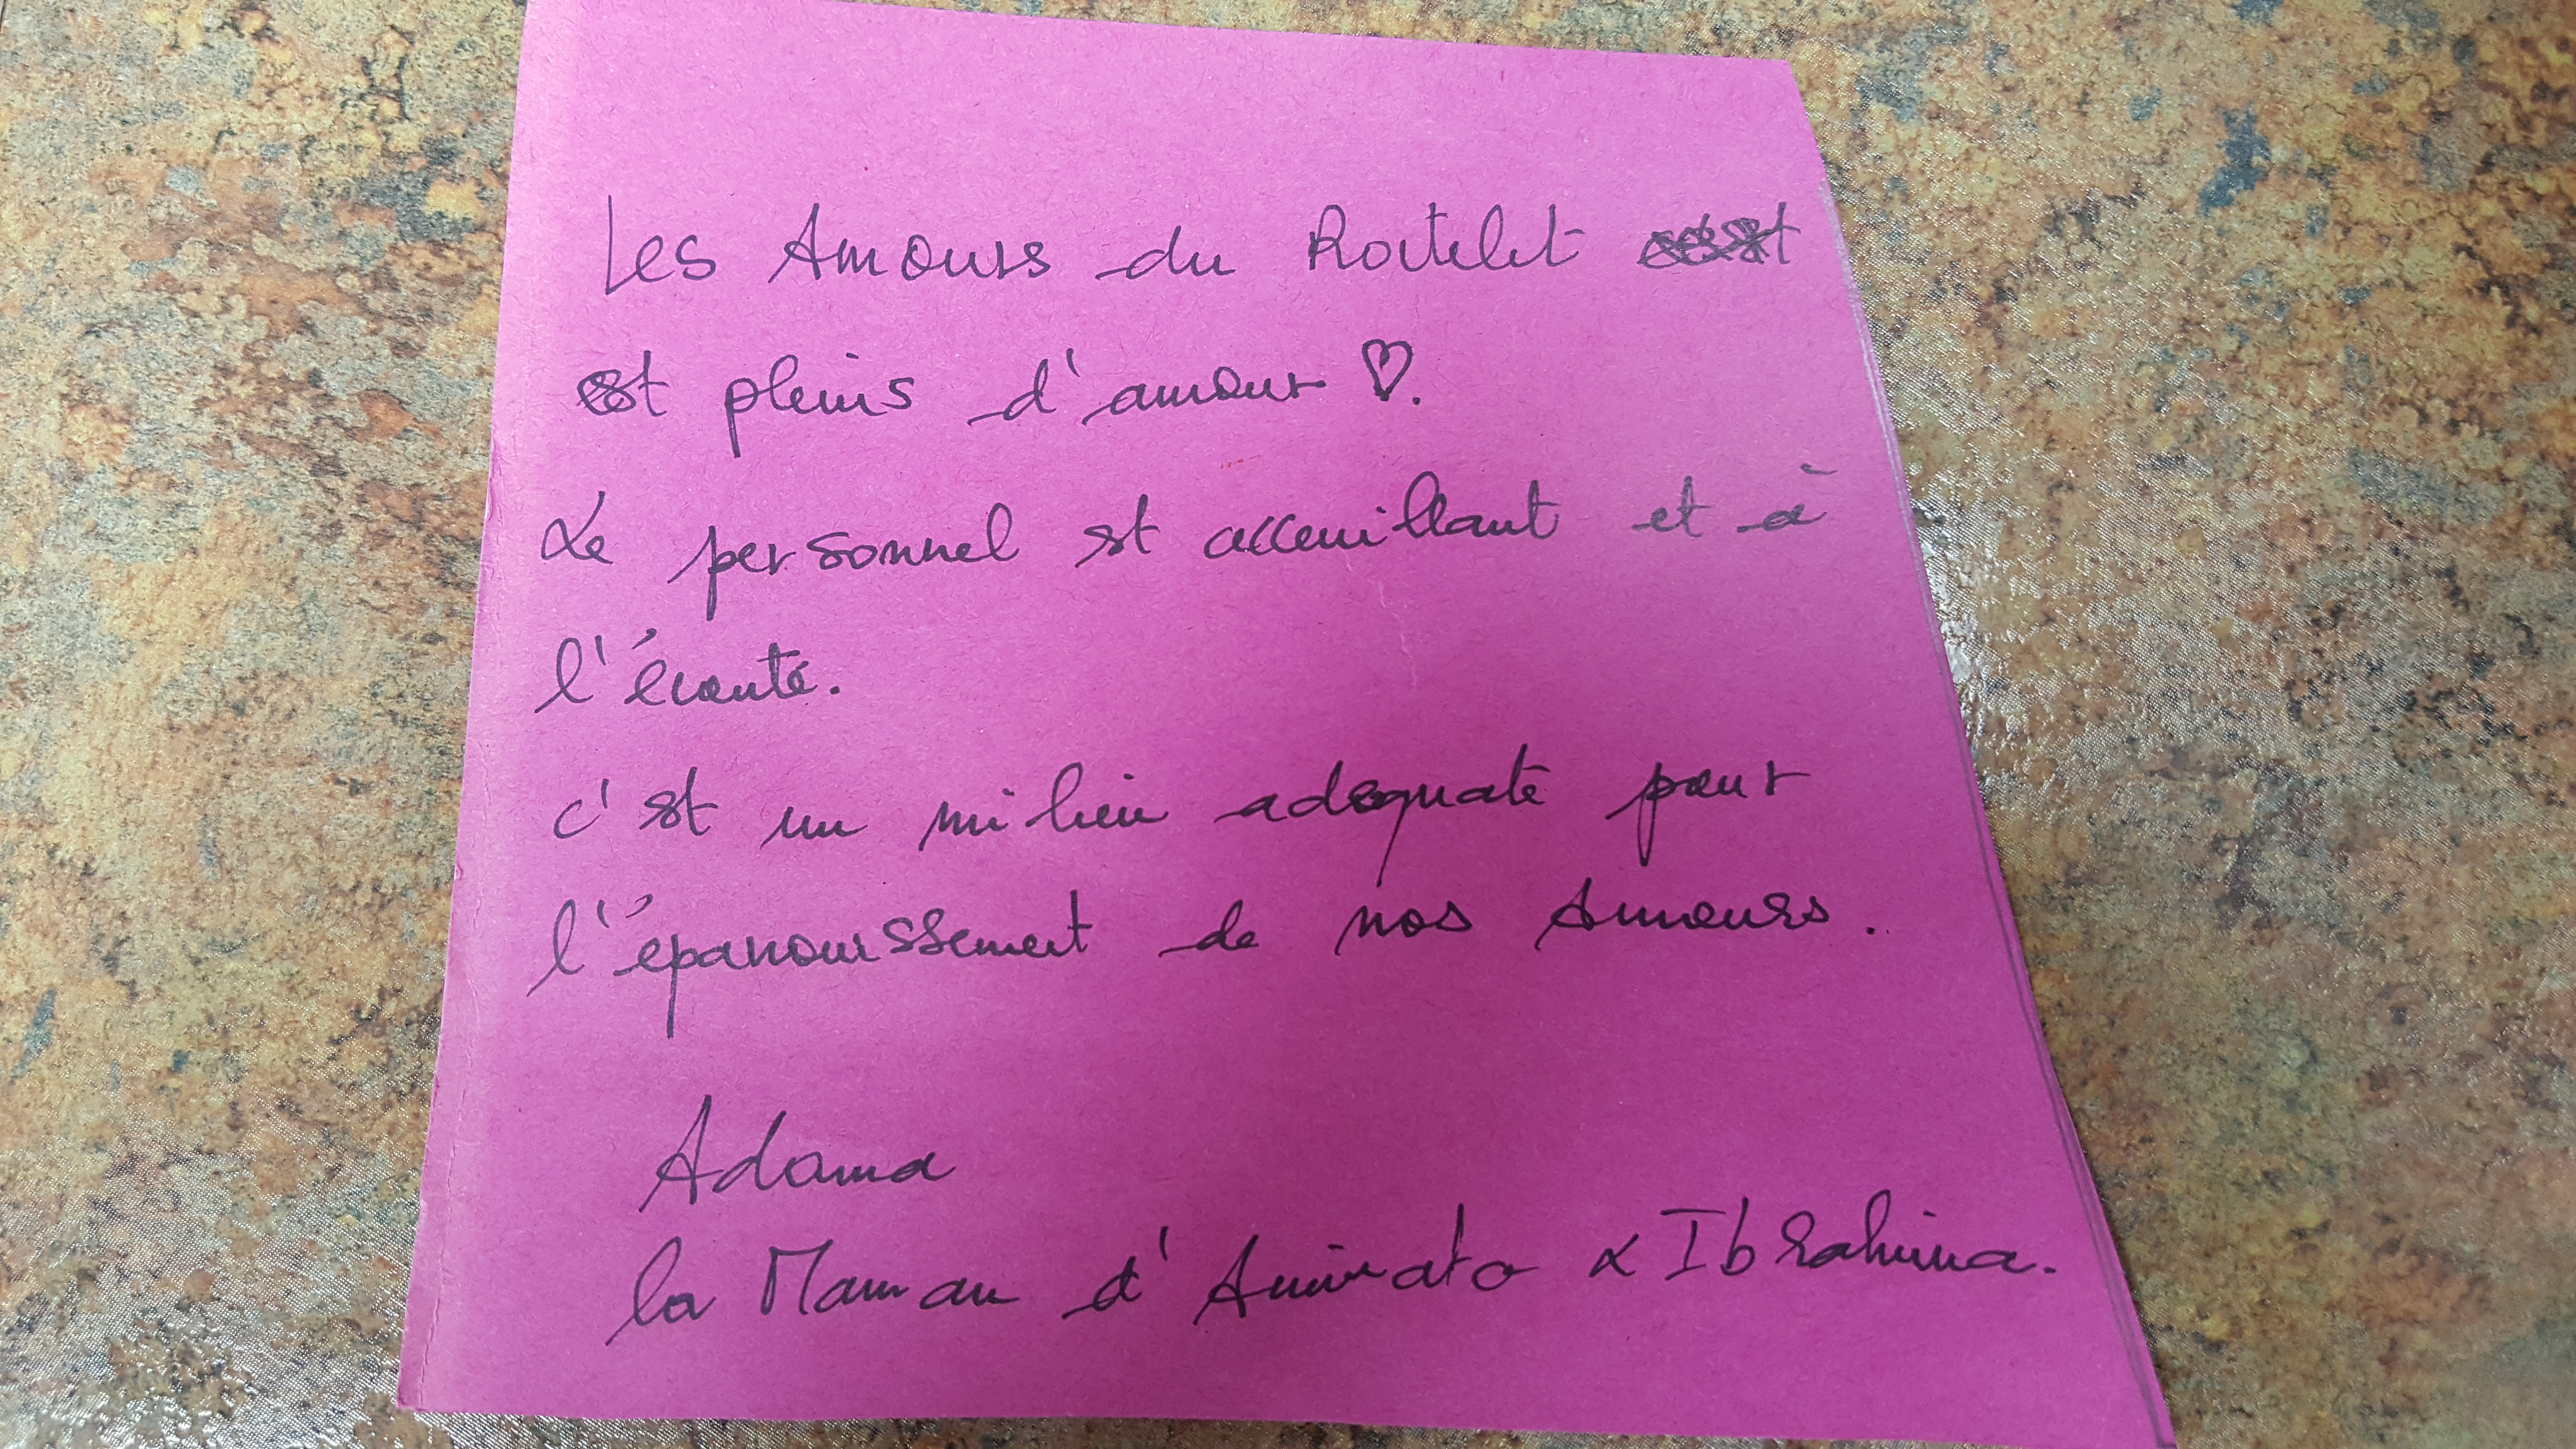 Les Amours du Roitelet
est pleins d'amour ♡.
Le personnel est acceuillant et à
l'écoute.
c'est un milieu adequate pour
l'épanouissement de nos Amours.
Adama
la Maman d'Aminata & Ibrahima.